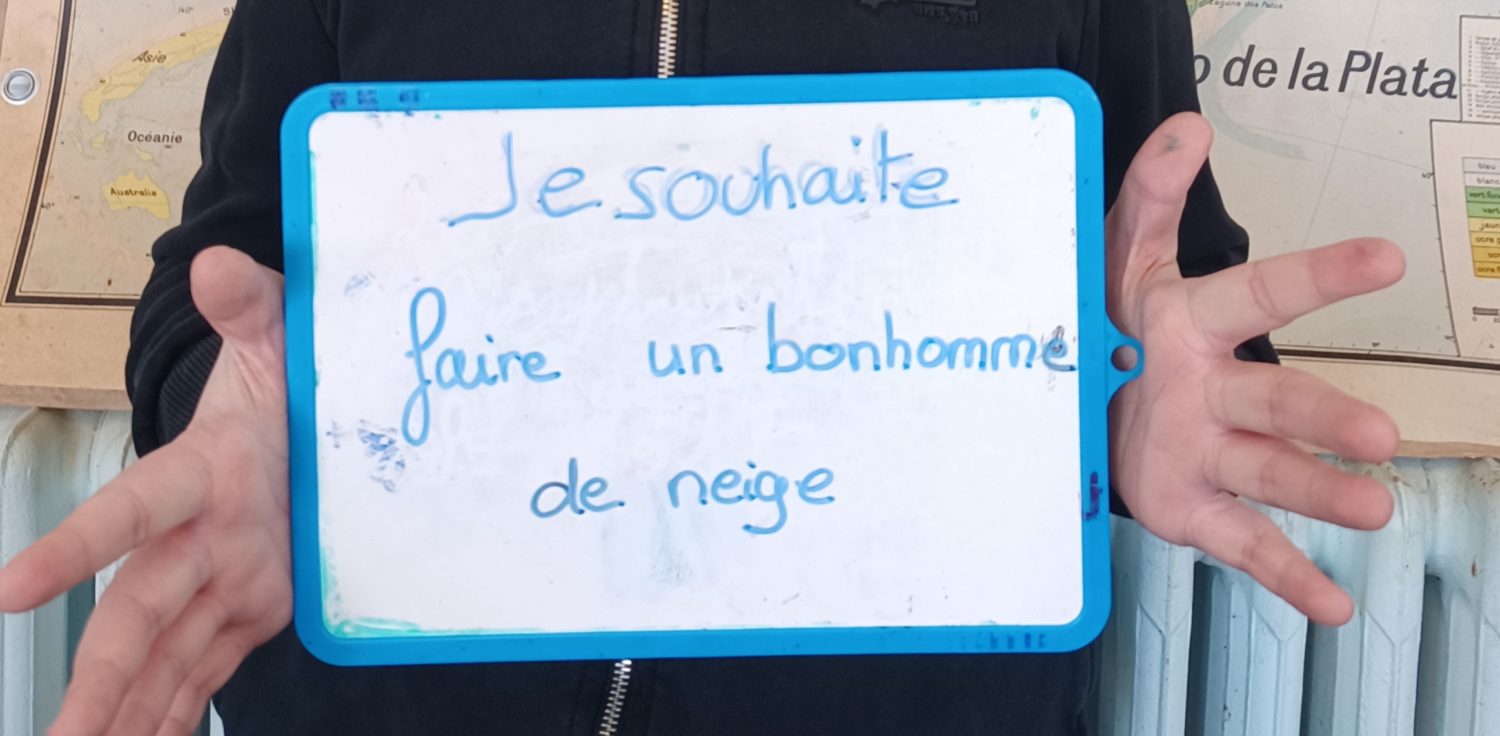 Asie
Océanie
Australie
Lagune dos Patos
de la Plata
Je souhaite
faire un bonhomme
de neige
bleu
blanc
vert